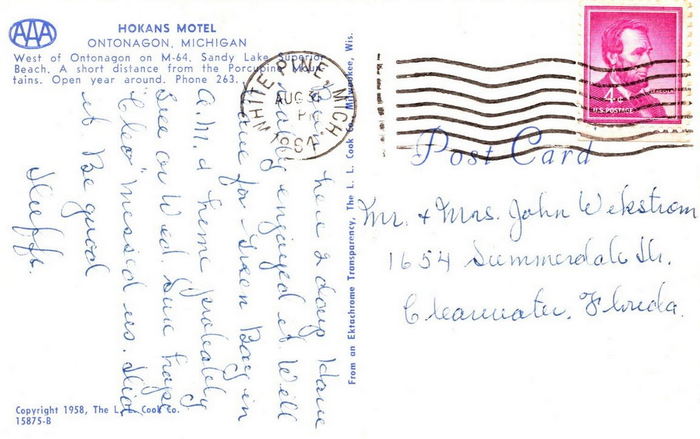 AAA
HOKANS MOTEL
ONTONAGON, MICHIGAN
West of Ontonagon on M-64. Sandy Lake Superior
Beach. A short distance from the Porcupine Moun-
tains. Open year around. Phone 263.
Been here 2 days Have
really enjoyed it. Will
leave for Green Bay in
A.M. & home probably
See or Wed Sure hope
"Cleo" missed us.
it. Be good
Copyright 1958, The L. L. Cook Co.
15875-B
From an Ektachrome Transparency, The L. L. Cook Co., Milwaukee, Wis.
WHITE PINE, MICH
AUG
P
1964
4¢
U.S. POSTAGE
Post Card
Mr. & Mrs. John Wekstrom
1654 Summerdale Dr.
Clearwater, Florida.